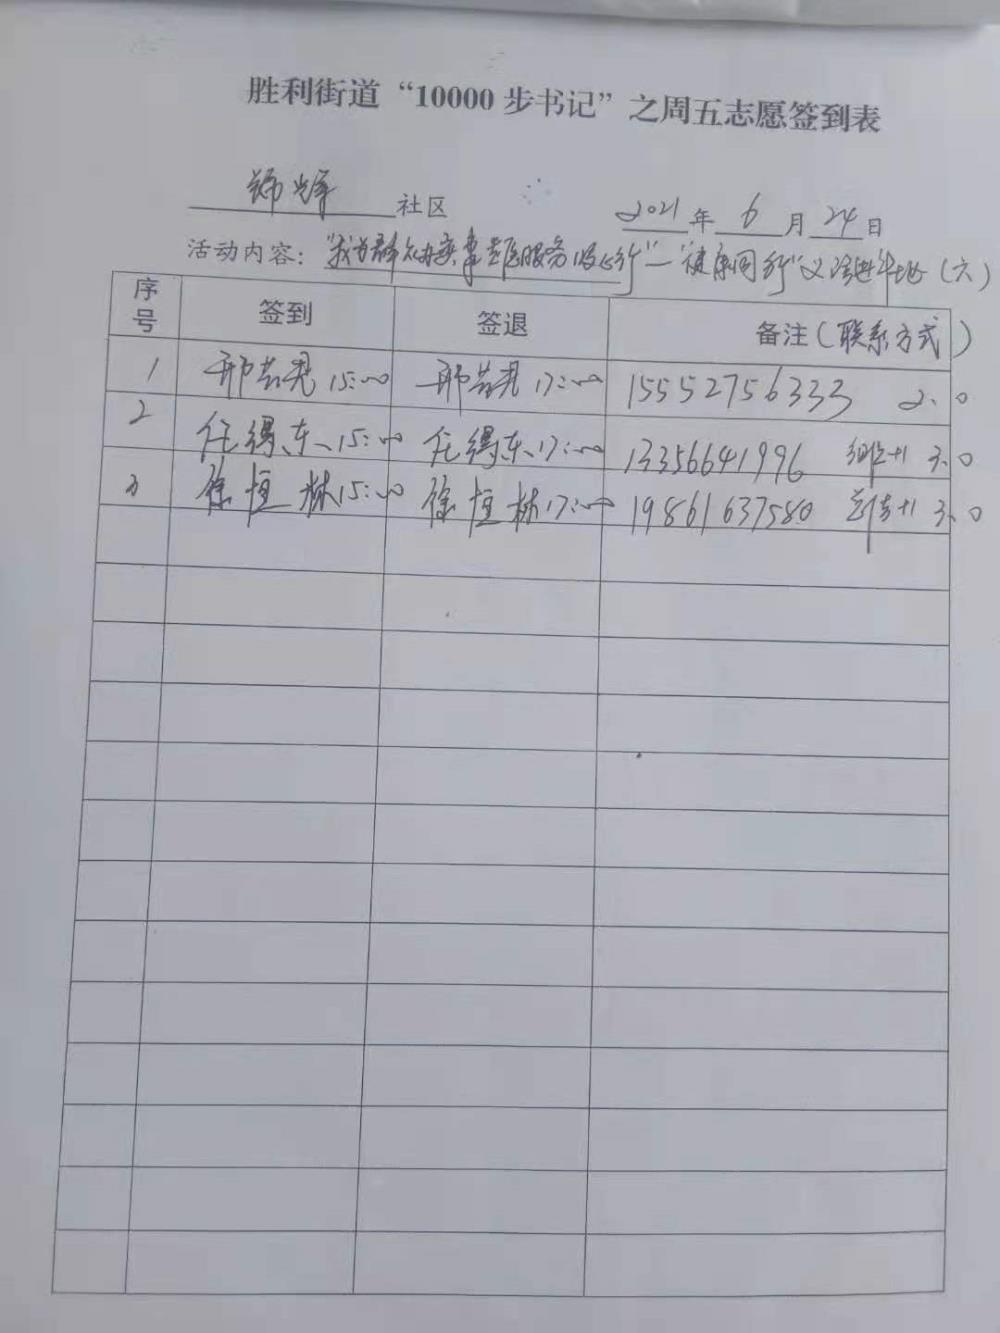 胜利街道“10000步书记”之周五志愿签到表
锦辉社区 2021年6月24日
活动内容：“我为群众办实事 服务 行”—“健康同行”义诊进 （六）
序号 签到 签退 备注（联系方式）
1 邢 15:00 邢 17:00 15552756333 2.0
2 任得东 15:00 任得东 17:00 13356641996 +1 3.0
3 徐恒林 15:00 徐恒林 17:00 19861637580 +1 3.0